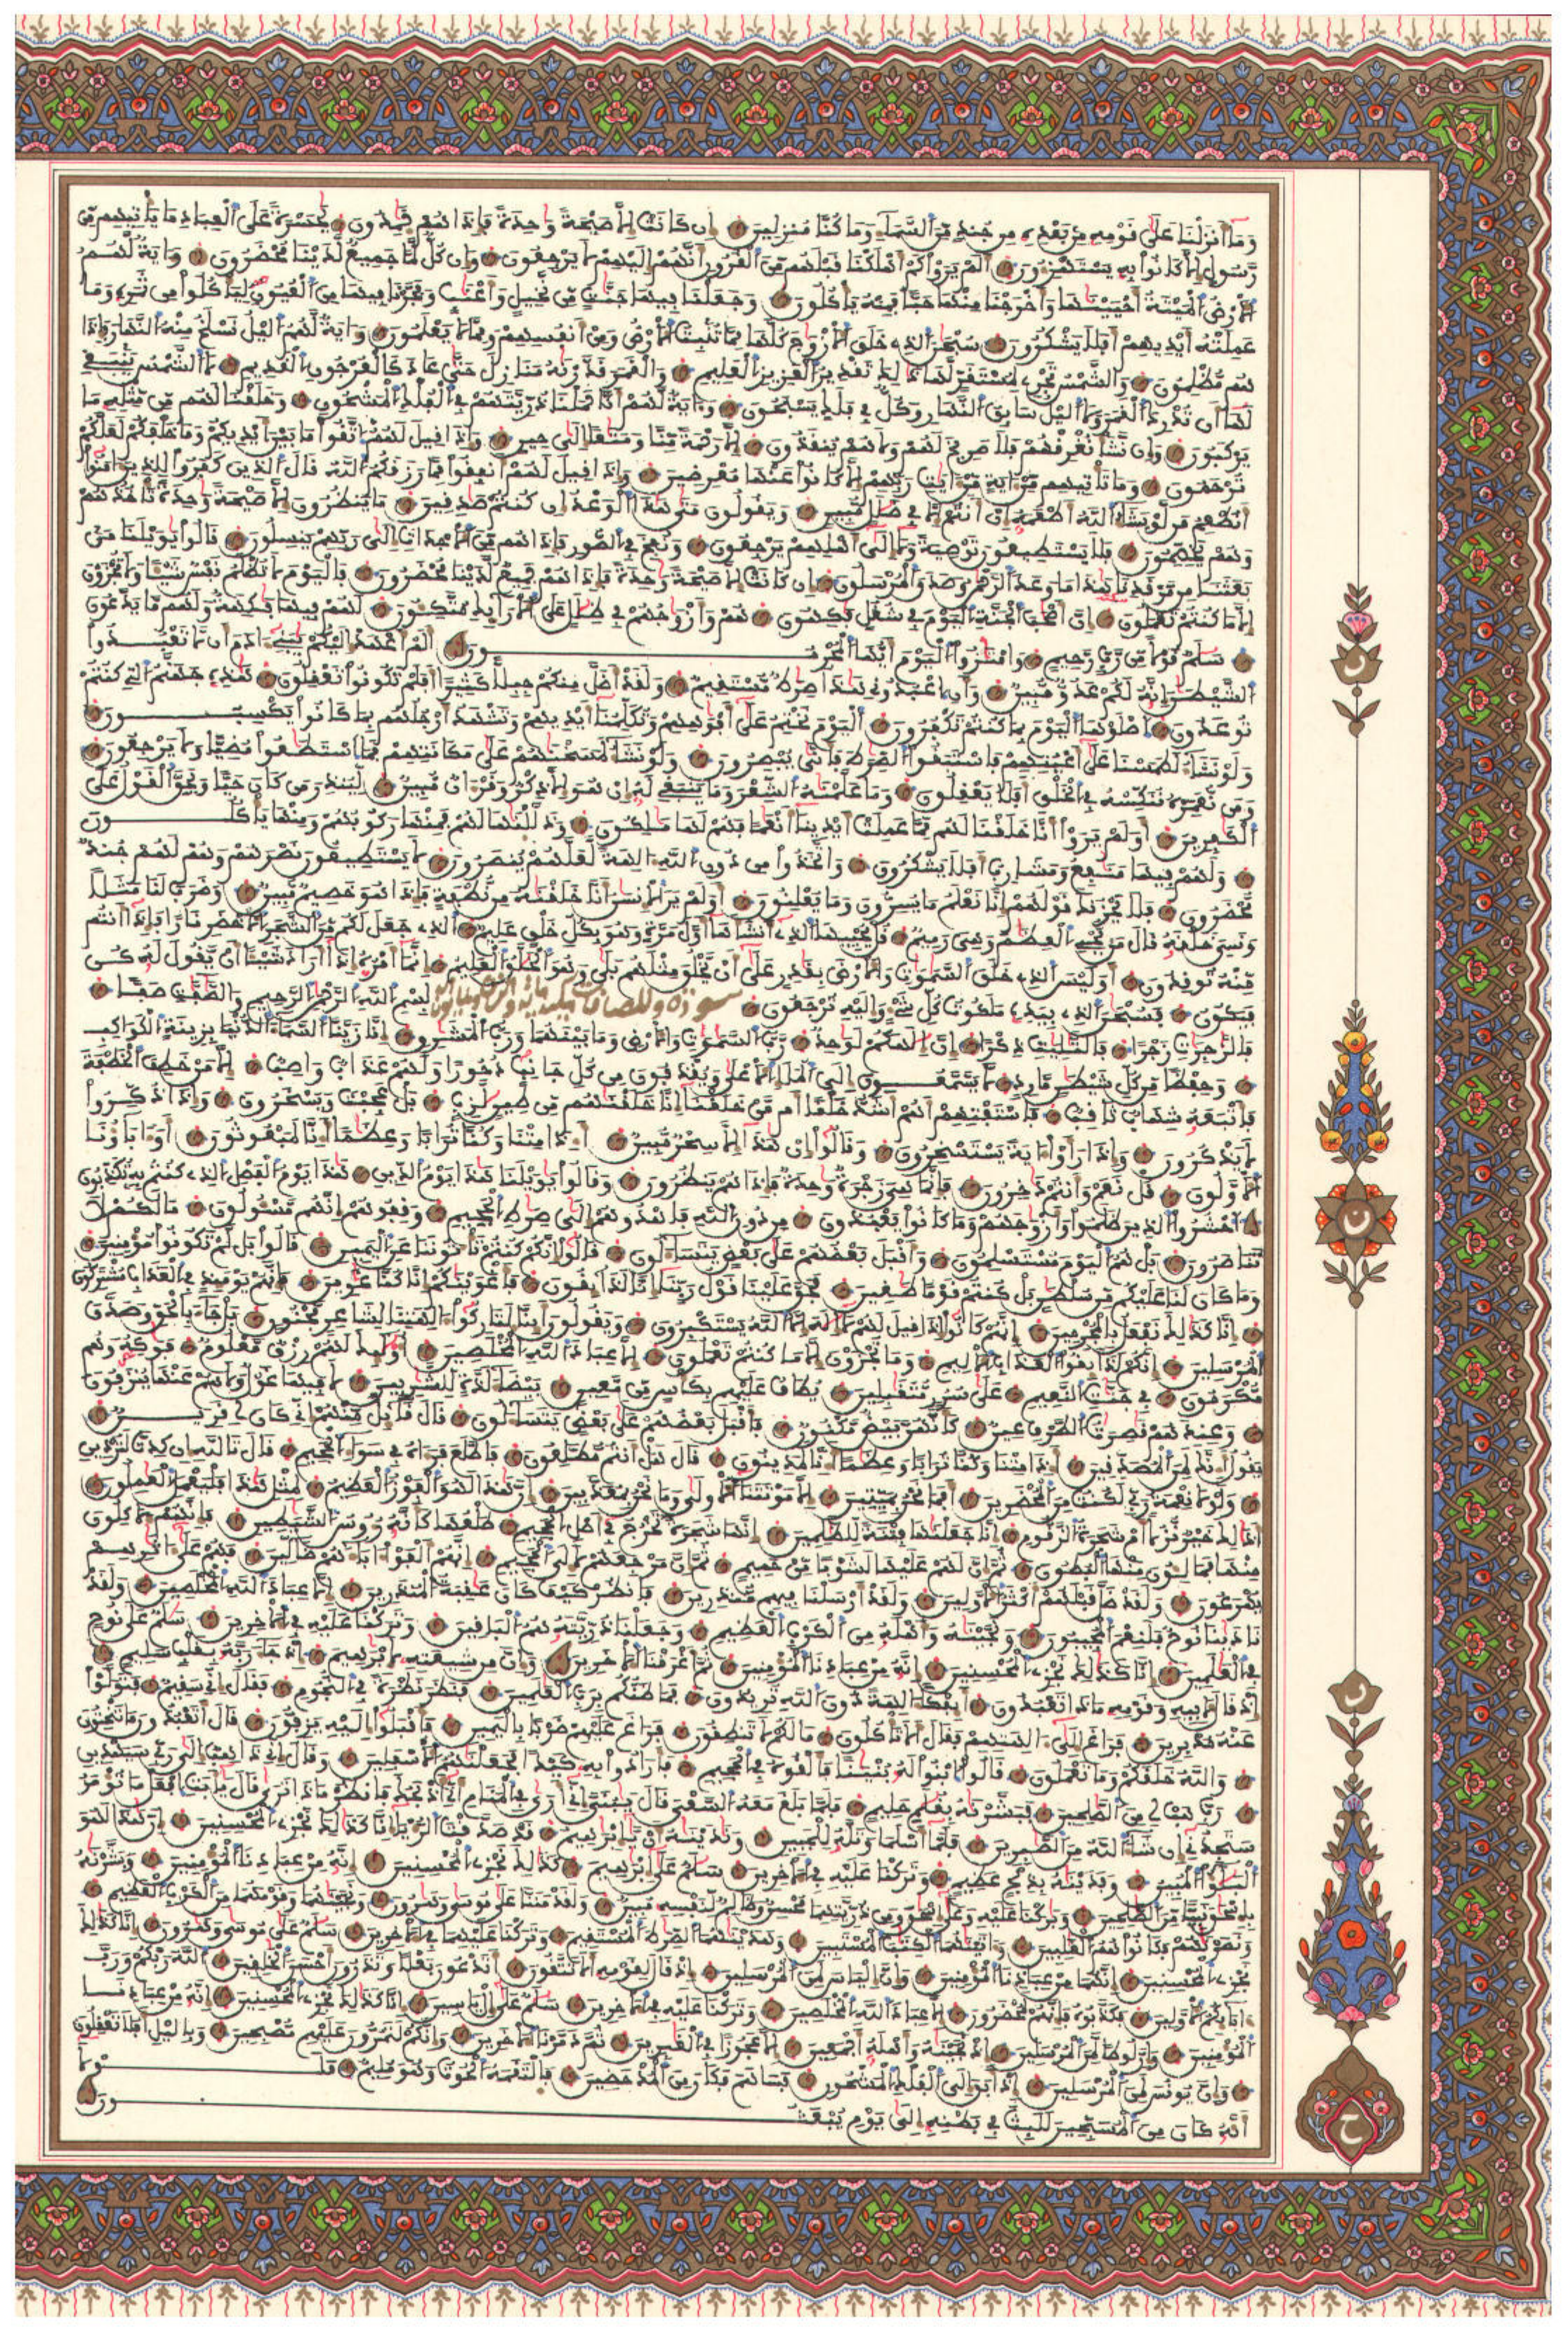 وما أنزلنا على قومه من بعده من جند من السماء وما كنا منزلين إن كانت إلا صيحة واحدة فإذا هم خمدون يحسرة على العباد ما يأتيهم من
رسول إلا كانوا به يستهزءون ألم يروا كم أهلكنا قبلهم من القرون أنهم إليهم لا يرجعون وإن كل لما جميع لدينا محضرون وءاية لهم
الأرض الميتة أحييناها وأخرجنا منها حبا فمنه يأكلون وجعلنا فيها جنت من نخيل وأعنب وفجرنا فيها من العيون ليأكلوا من ثمره وما
عملته أيديهم أفلا يشكرون سبحن الذي خلق الأزوج كلها مما تنبت الأرض ومن أنفسهم ومما لا يعلمون وءاية لهم اليل نسلخ منه النهار فإذا
هم مظلمون والشمس تجري لمستقر لها ذلك تقدير العزيز العليم والقمر قدرنه منازل حتى عاد كالعرجون القديم لا الشمس ينبغي
لها أن تدرك القمر ولا اليل سابق النهار وكل في فلك يسبحون وءاية لهم أنا حملنا ذريتهم في الفلك المشحون وخلقنا لهم من مثله ما
يركبون وإن نشأ نغرقهم فلا صريخ لهم ولا هم ينقذون إلا رحمة منا ومتعا إلى حين وإذا قيل لهم اتقوا ما بين أيديكم وما خلفكم لعلكم
ترحمون وما تأتيهم من ءاية من ءايت ربهم إلا كانوا عنها معرضين وإذا قيل لهم أنفقوا مما رزقكم الله قال الذين كفروا للذين ءامنوا
أنطعم من لو يشاء الله أطعمه إن أنتم إلا في ضلل مبين ويقولون متى هذا الوعد إن كنتم صدقين ما ينظرون إلا صيحة وحدة تأخذهم
وهم يخصمون فلا يستطيعون توصية ولا إلى أهلهم يرجعون ونفخ في الصور فإذا هم من الأجداث إلى ربهم ينسلون قالوا يويلنا من
بعثنا من مرقدنا هذا ما وعد الرحمن وصدق المرسلون إن كانت إلا صيحة وحدة فإذا هم جميع لدينا محضرون فاليوم لا تظلم نفس شيئا ولا تجزون
إلا ما كنتم تعملون إن أصحب الجنة اليوم في شغل فكهون هم وأزوجهم في ظلل على الأرايك متكون لهم فيها فكهة ولهم ما يدعون
سلم قولا من رب رحيم وامتزوا اليوم أيها المجرمون ألم أعهد إليكم يبني ءادم أن لا تعبدوا
الشيطن إنه لكم عدو مبين وأن اعبدوني هذا صرط مستقيم ولقد أضل منكم جبلا كثيرا أفلم تكونوا تعقلون هذه جهنم التي كنتم
توعدون اصلوها اليوم بما كنتم تكفرون اليوم نختم على أفوههم وتكلمنا أيديهم وتشهد أرجلهم بما كانوا يكسبون
ولو نشاء لطمسنا على أعينهم فاستبقوا الصرط فأنى يبصرون ولو نشاء لمسخنهم على مكانتهم فما استطعوا مضيا ولا يرجعون
ومن نعمره ننكسه في الخلق أفلا يعقلون وما علمنه الشعر وما ينبغي له إن هو إلا ذكر وقرءان مبين لينذر من كان حيا ويحق القول على
الكفرين أولم يروا أنا خلقنا لهم مما عملت أيدينا أنعما فهم لها ملكون وذللنها لهم فمنها ركوبهم ومنها يأكلون
ولهم فيها منفع ومشارب أفلا يشكرون واتخذوا من دون الله ءالهة لعلهم ينصرون لا يستطيعون نصرهم وهم لهم جند
محضرون فلا يحزنك قولهم إنا نعلم ما يسرون وما يعلنون أولم ير الإنسن أنا خلقنه من نطفة فإذا هو خصيم مبين وضرب لنا مثلا
ونسي خلقه قال من يحي العظم وهي رميم قل يحييها الذي أنشأها أول مرة وهو بكل خلق عليم الذي جعل لكم من الشجر الأخضر نارا فإذا أنتم
منه توقدون أوليس الذي خلق السموت والأرض بقدر على أن يخلق مثلهم بلى وهو الخلق العليم إنما أمره إذا أراد شيئا أن يقول له كن
فيكون فسبحن الذي بيده ملكوت كل شيء وإليه ترجعون سورة والصافات مكية بسم الله الرحمن الرحيم والصفت صفا
فالزجرت زجرا فالتليت ذكرا إن إلهكم لوحد رب السموت والأرض وما بينهما ورب المشرق إنا زينا السماء الدنيا بزينة الكواكب
وحفظا من كل شيطن مارد لا يسمعون إلى الملإ الأعلى ويقذفون من كل جانب دحورا ولهم عذاب واصب إلا من خطف الخطفة
فأتبعه شهاب ثاقب فاستفتهم أهم أشد خلقا أم من خلقنا إنا خلقنهم من طين لازب بل عجبت ويسخرون وإذا ذكروا
لا يذكرون وإذا رأوا ءاية يستسخرون وقالوا إن هذا إلا سحر مبين أءذا متنا وكنا ترابا وعظما إنا لمبعوثون أو ءاباؤنا
الأولون قل نعم وأنتم دخرون فإنما هي زجرة وحدة فإذا هم ينظرون وقالوا يويلنا هذا يوم الدين هذا يوم الفصل الذي كنتم به تكذبون
احشروا الذين ظلموا وأزوجهم وما كانوا يعبدون من دون الله فاهدوهم إلى صرط الجحيم وقفوهم إنهم مسئولون ما لكم لا
تناصرون بل هم اليوم مستسلمون وأقبل بعضهم على بعض يتساءلون قالوا إنكم كنتم تأتوننا عن اليمين قالوا بل لم تكونوا مؤمنين
وما كان لنا عليكم من سلطن بل كنتم قوما طغين فحق علينا قول ربنا إنا لذايقون فأغوينكم إنا كنا غوين فإنهم يوميذ في العذاب مشتركون
إنا كذلك نفعل بالمجرمين إنهم كانوا إذا قيل لهم لا إله إلا الله يستكبرون ويقولون أينا لتاركوا ءالهتنا لشاعر مجنون بل جاء بالحق وصدق
المرسلين إنكم لذايقوا العذاب الأليم وما تجزون إلا ما كنتم تعملون إلا عباد الله المخلصين أوليك لهم رزق معلوم فوكه وهم
مكرمون في جنت النعيم على سرر متقبلين يطاف عليهم بكأس من معين بيضاء لذة للشربين لا فيها غول ولا هم عنها ينزفون
وعندهم قصرت الطرف عين كأنهن بيض مكنون فأقبل بعضهم على بعض يتساءلون قال قايل منهم إني كان لي قرين
يقول أءنك لمن المصدقين أءذا متنا وكنا ترابا وعظما إنا لمدينون قال هل أنتم مطلعون فاطلع فرءاه في سواء الجحيم قال تالله إن كدت لتردين
ولولا نعمة ربي لكنت من المحضرين أفما نحن بميتين إلا موتتنا الأولى وما نحن بمعذبين إن هذا لهو الفوز العظيم لمثل هذا فليعمل العملون
أذلك خير نزلا أم شجرة الزقوم إنا جعلنها فتنة للظلمين إنها شجرة تخرج في أصل الجحيم طلعها كأنه رءوس الشيطين فإنهم لأكلون
منها فمالئون منها البطون ثم إن لهم عليها لشوبا من حميم ثم إن مرجعهم لإلى الجحيم إنهم ألفوا ءاباءهم ضالين فهم على ءاثرهم
يهرعون ولقد ضل قبلهم أكثر الأولين ولقد أرسلنا فيهم منذرين فانظر كيف كان عقبة المنذرين إلا عباد الله المخلصين ولقد
نادينا نوح فلنعم المجيبون ونجينه وأهله من الكرب العظيم وجعلنا ذريته هم الباقين وتركنا عليه في الأخرين سلم على نوح
في العلمين إنا كذلك نجزي المحسنين إنه من عبادنا المؤمنين ثم أغرقنا الأخرين وإن من شيعته لإبرهيم إذ جاء ربه بقلب سليم
إذ قال لأبيه وقومه ماذا تعبدون أيفكا ءالهة دون الله تريدون فما ظنكم برب العلمين فنظر نظرة في النجوم فقال إني سقيم فتولوا
عنه مدبرين فراغ إلى ءالهتهم فقال ألا تأكلون ما لكم لا تنطقون فراغ عليهم ضربا باليمين فأقبلوا إليه يزفون قال أتعبدون ما تنحتون
والله خلقكم وما تعملون قالوا ابنوا له بنينا فألقوه في الجحيم فأرادوا به كيدا فجعلنهم الأسفلين وقال إني ذاهب إلى ربي سيهدين
رب هب لي من الصلحين فبشرنه بغلم حليم فلما بلغ معه السعي قال يبني إني أرى في المنام أني أذبحك فانظر ماذا ترى قال يأبت افعل ما تومر
ستجدني إن شاء الله من الصبرين فلما أسلما وتله للجبين وندينه أن يإبرهيم قد صدقت الرءيا إنا كذلك نجزي المحسنين إن هذا لهو
البلؤا المبين وفدينه بذبح عظيم وتركنا عليه في الأخرين سلم على إبرهيم كذلك نجزي المحسنين إنه من عبادنا المؤمنين وبشرنه
بإسحق نبيا من الصلحين وبركنا عليه وعلى إسحق ومن ذريتهما محسن وظالم لنفسه مبين ولقد مننا على موسى وهرون ونجينهما وقومهما من الكرب العظيم
ونصرنهم فكانوا هم الغلبين وءاتينهما الكتب المستبين وهدينهما الصرط المستقيم وتركنا عليهما في الأخرين سلم على موسى وهرون إنا كذلك
نجزي المحسنين إنهما من عبادنا المؤمنين وإن إلياس لمن المرسلين إذ قال لقومه ألا تتقون أتدعون بعلا وتذرون أحسن الخلقين الله ربكم ورب
ءابايكم الأولين فكذبوه فإنهم لمحضرون إلا عباد الله المخلصين وتركنا عليه في الأخرين سلم على ءال ياسين إنا كذلك نجزي المحسنين إنه من عبادنا
المؤمنين وإن لوطا لمن المرسلين إذ نجينه وأهله أجمعين إلا عجوزا في الغبرين ثم دمرنا الأخرين وإنكم لتمرون عليهم مصبحين وباليل أفلا تعقلون
وإن يونس لمن المرسلين إذ أبق إلى الفلك المشحون فساهم فكان من المدحضين فالتقمه الحوت وهو مليم فلولا
أنه كان من المسبحين للبث في بطنه إلى يوم يبعثون